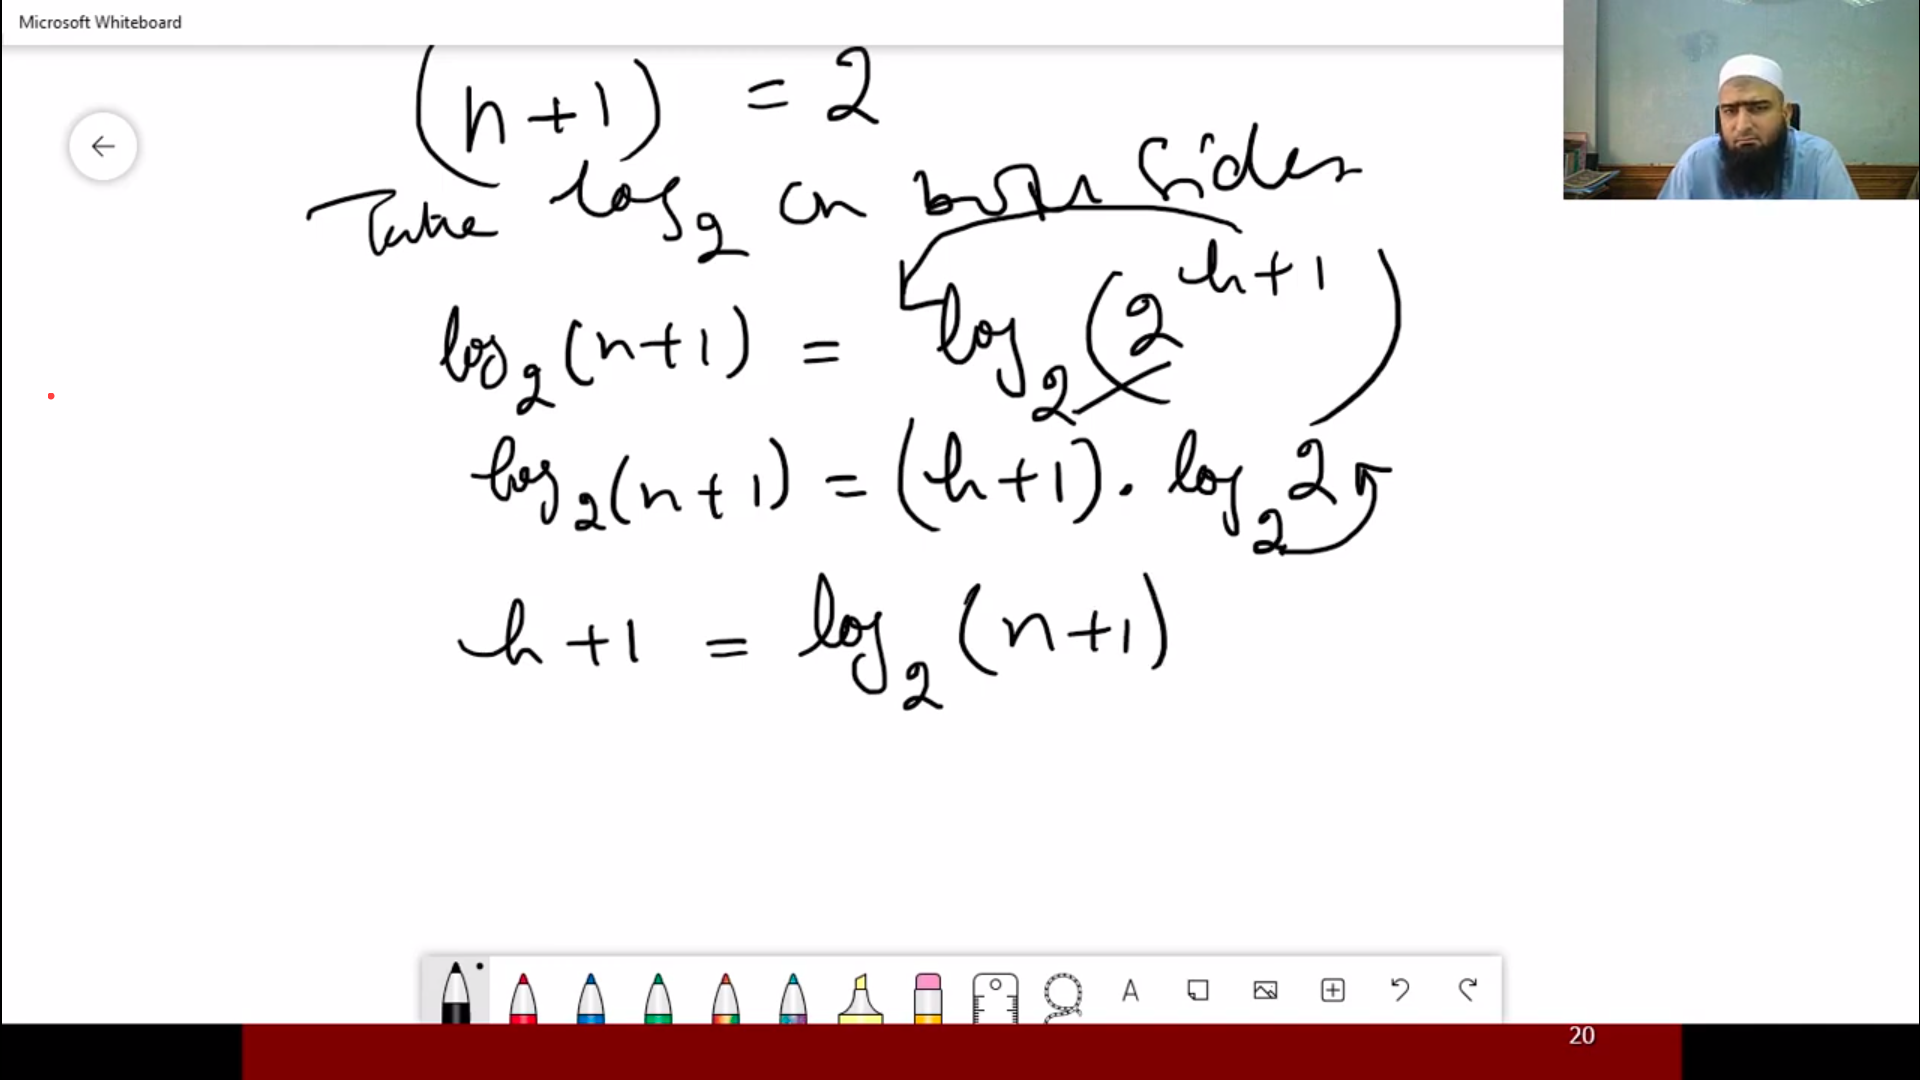 Microsoft Whiteboard
(n+1) = 2
Take log₂ on both sides
log₂(n+1) = log₂(2^(h+1))
log₂(n+1) = (h+1) . log₂2
h+1 = log₂(n+1)
A
20